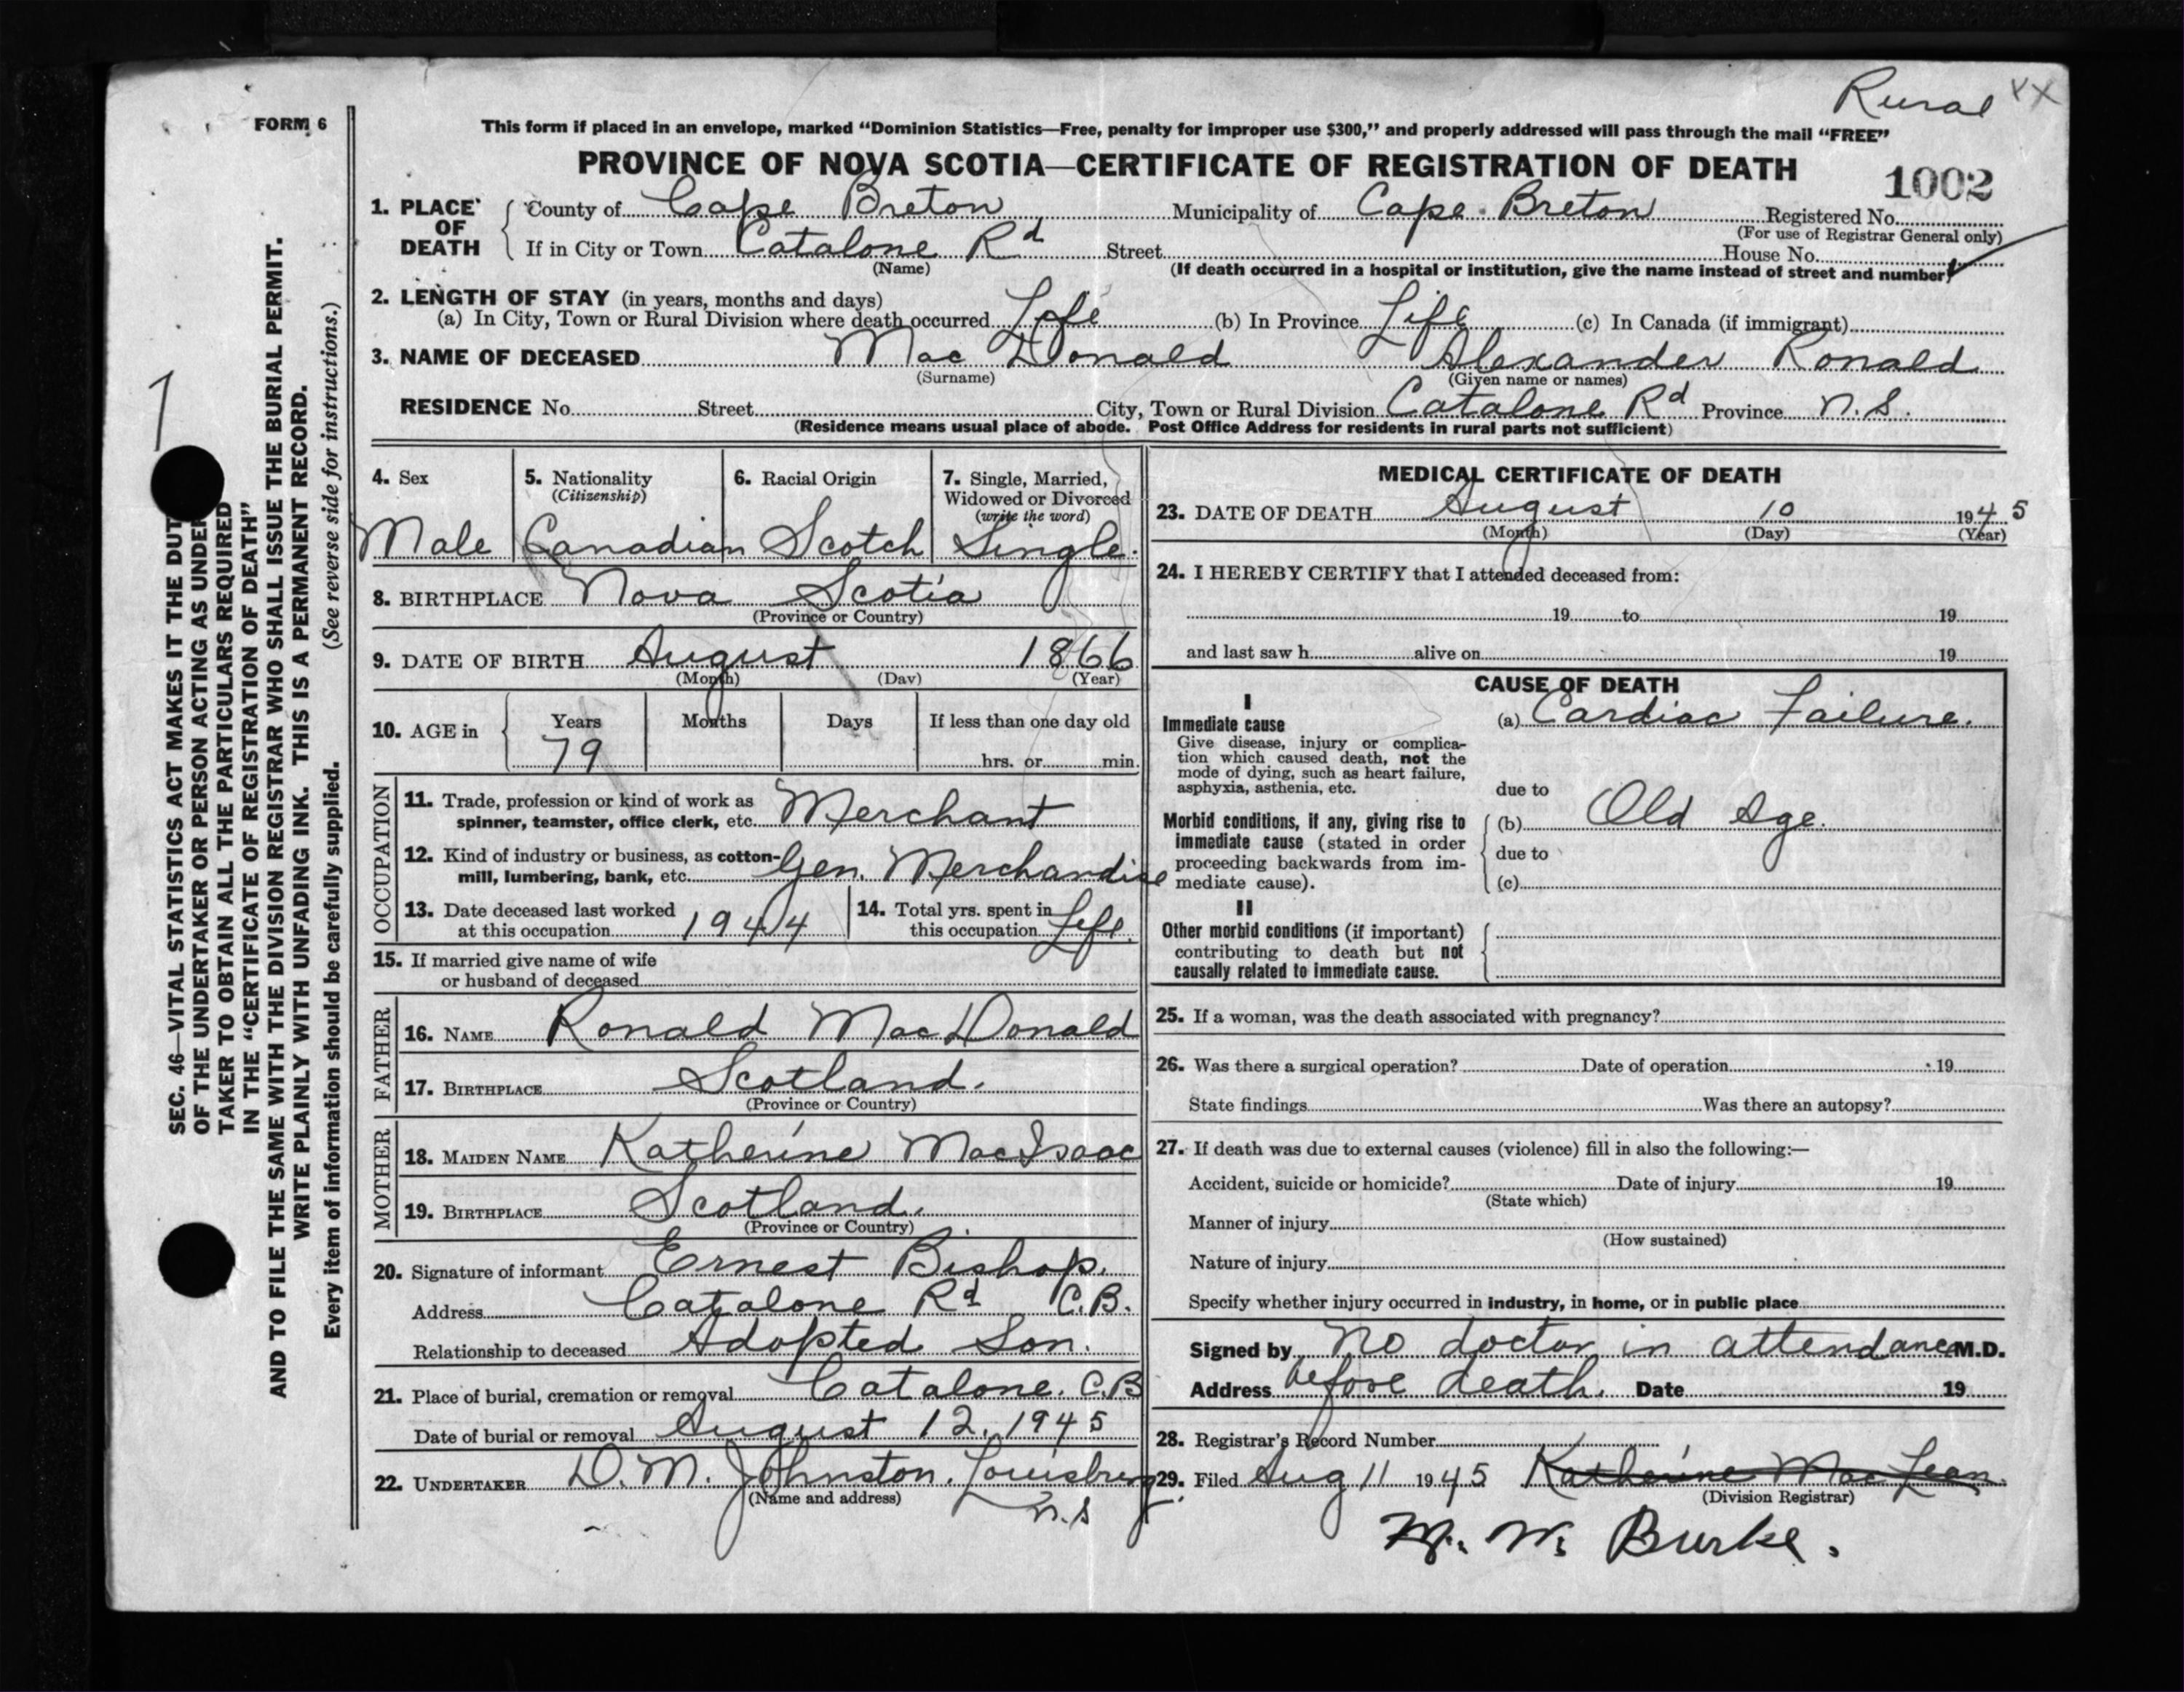 Rural XX
FORM 6
This form if placed in an envelope, marked "Dominion Statistics—Free, penalty for improper use $300," and properly addressed will pass through the mail "FREE"
PROVINCE OF NOVA SCOTIA—CERTIFICATE OF REGISTRATION OF DEATH
1002
1. PLACE OF DEATH
County of Cape Breton Municipality of Cape Breton Registered No.
(For use of Registrar General only)
If in City or Town Catalone Rd Street House No.
(Name)
(If death occurred in a hospital or institution, give the name instead of street and number)
2. LENGTH OF STAY (in years, months and days)
(a) In City, Town or Rural Division where death occurred Life (b) In Province Life (c) In Canada (if immigrant)
3. NAME OF DECEASED Mac Donald Alexander Ronald
(Surname) (Given name or names)
RESIDENCE No. Street City, Town or Rural Division Catalone Rd Province N.S.
(Residence means usual place of abode. Post Office Address for residents in rural parts not sufficient)
4. Sex
Male
5. Nationality
(Citizenship)
Canadian
6. Racial Origin
Scotch
7. Single, Married,
Widowed or Divorced
(write the word)
Single.
8. BIRTHPLACE Nova Scotia
(Province or Country)
9. DATE OF BIRTH August 1866
(Month) (Day) (Year)
10. AGE in Years Months Days If less than one day old
79 hrs. or min.
OCCUPATION
11. Trade, profession or kind of work as
spinner, teamster, office clerk, etc. Merchant
12. Kind of industry or business, as cotton-
mill, lumbering, bank, etc. Gen. Merchandise
13. Date deceased last worked
at this occupation 1944
14. Total yrs. spent in
this occupation Life.
15. If married give name of wife
or husband of deceased
FATHER
16. NAME Ronald MacDonald
17. BIRTHPLACE Scotland.
(Province or Country)
MOTHER
18. MAIDEN NAME Katherine MacIsaac
19. BIRTHPLACE Scotland.
(Province or Country)
20. Signature of informant Ernest Bishop.
Address Catalone Rd C.B.
Relationship to deceased Adopted Son.
21. Place of burial, cremation or removal Catalone. C.B
Date of burial or removal August 12, 1945
22. UNDERTAKER D. M. Johnston. Louisburg
(Name and address)
N.S.
MEDICAL CERTIFICATE OF DEATH
23. DATE OF DEATH August 10 1945
(Month) (Day) (Year)
24. I HEREBY CERTIFY that I attended deceased from:
19 to 19
and last saw h alive on 19
CAUSE OF DEATH
I
Immediate cause
Give disease, injury or complica-
tion which caused death, not the
mode of dying, such as heart failure,
asphyxia, asthenia, etc.
(a) Cardiac Failure.
due to
Morbid conditions, if any, giving rise to
immediate cause (stated in order
proceeding backwards from im-
mediate cause).
(b) Old Age.
due to
(c)
II
Other morbid conditions (if important)
contributing to death but not
causally related to immediate cause.
25. If a woman, was the death associated with pregnancy?
26. Was there a surgical operation? Date of operation 19
State findings Was there an autopsy?
27. If death was due to external causes (violence) fill in also the following:—
Accident, suicide or homicide? Date of injury 19
(State which)
Manner of injury
(How sustained)
Nature of injury
Specify whether injury occurred in industry, in home, or in public place
Signed by No doctor in attendance M.D.
Address before death. Date 19
28. Registrar's Record Number
29. Filed Aug 11 1945 Katherine MacLean.
(Division Registrar)
M. W. Burke.
SEC. 46—VITAL STATISTICS ACT MAKES IT THE DUT
OF THE UNDERTAKER OR PERSON ACTING AS UNDER
TAKER TO OBTAIN ALL THE PARTICULARS REQUIRED
IN THE "CERTIFICATE OF REGISTRATION OF DEATH"
AND TO FILE THE SAME WITH THE DIVISION REGISTRAR WHO SHALL ISSUE THE BURIAL PERMIT.
WRITE PLAINLY WITH UNFADING INK. THIS IS A PERMANENT RECORD.
Every item of information should be carefully supplied. (See reverse side for instructions.)